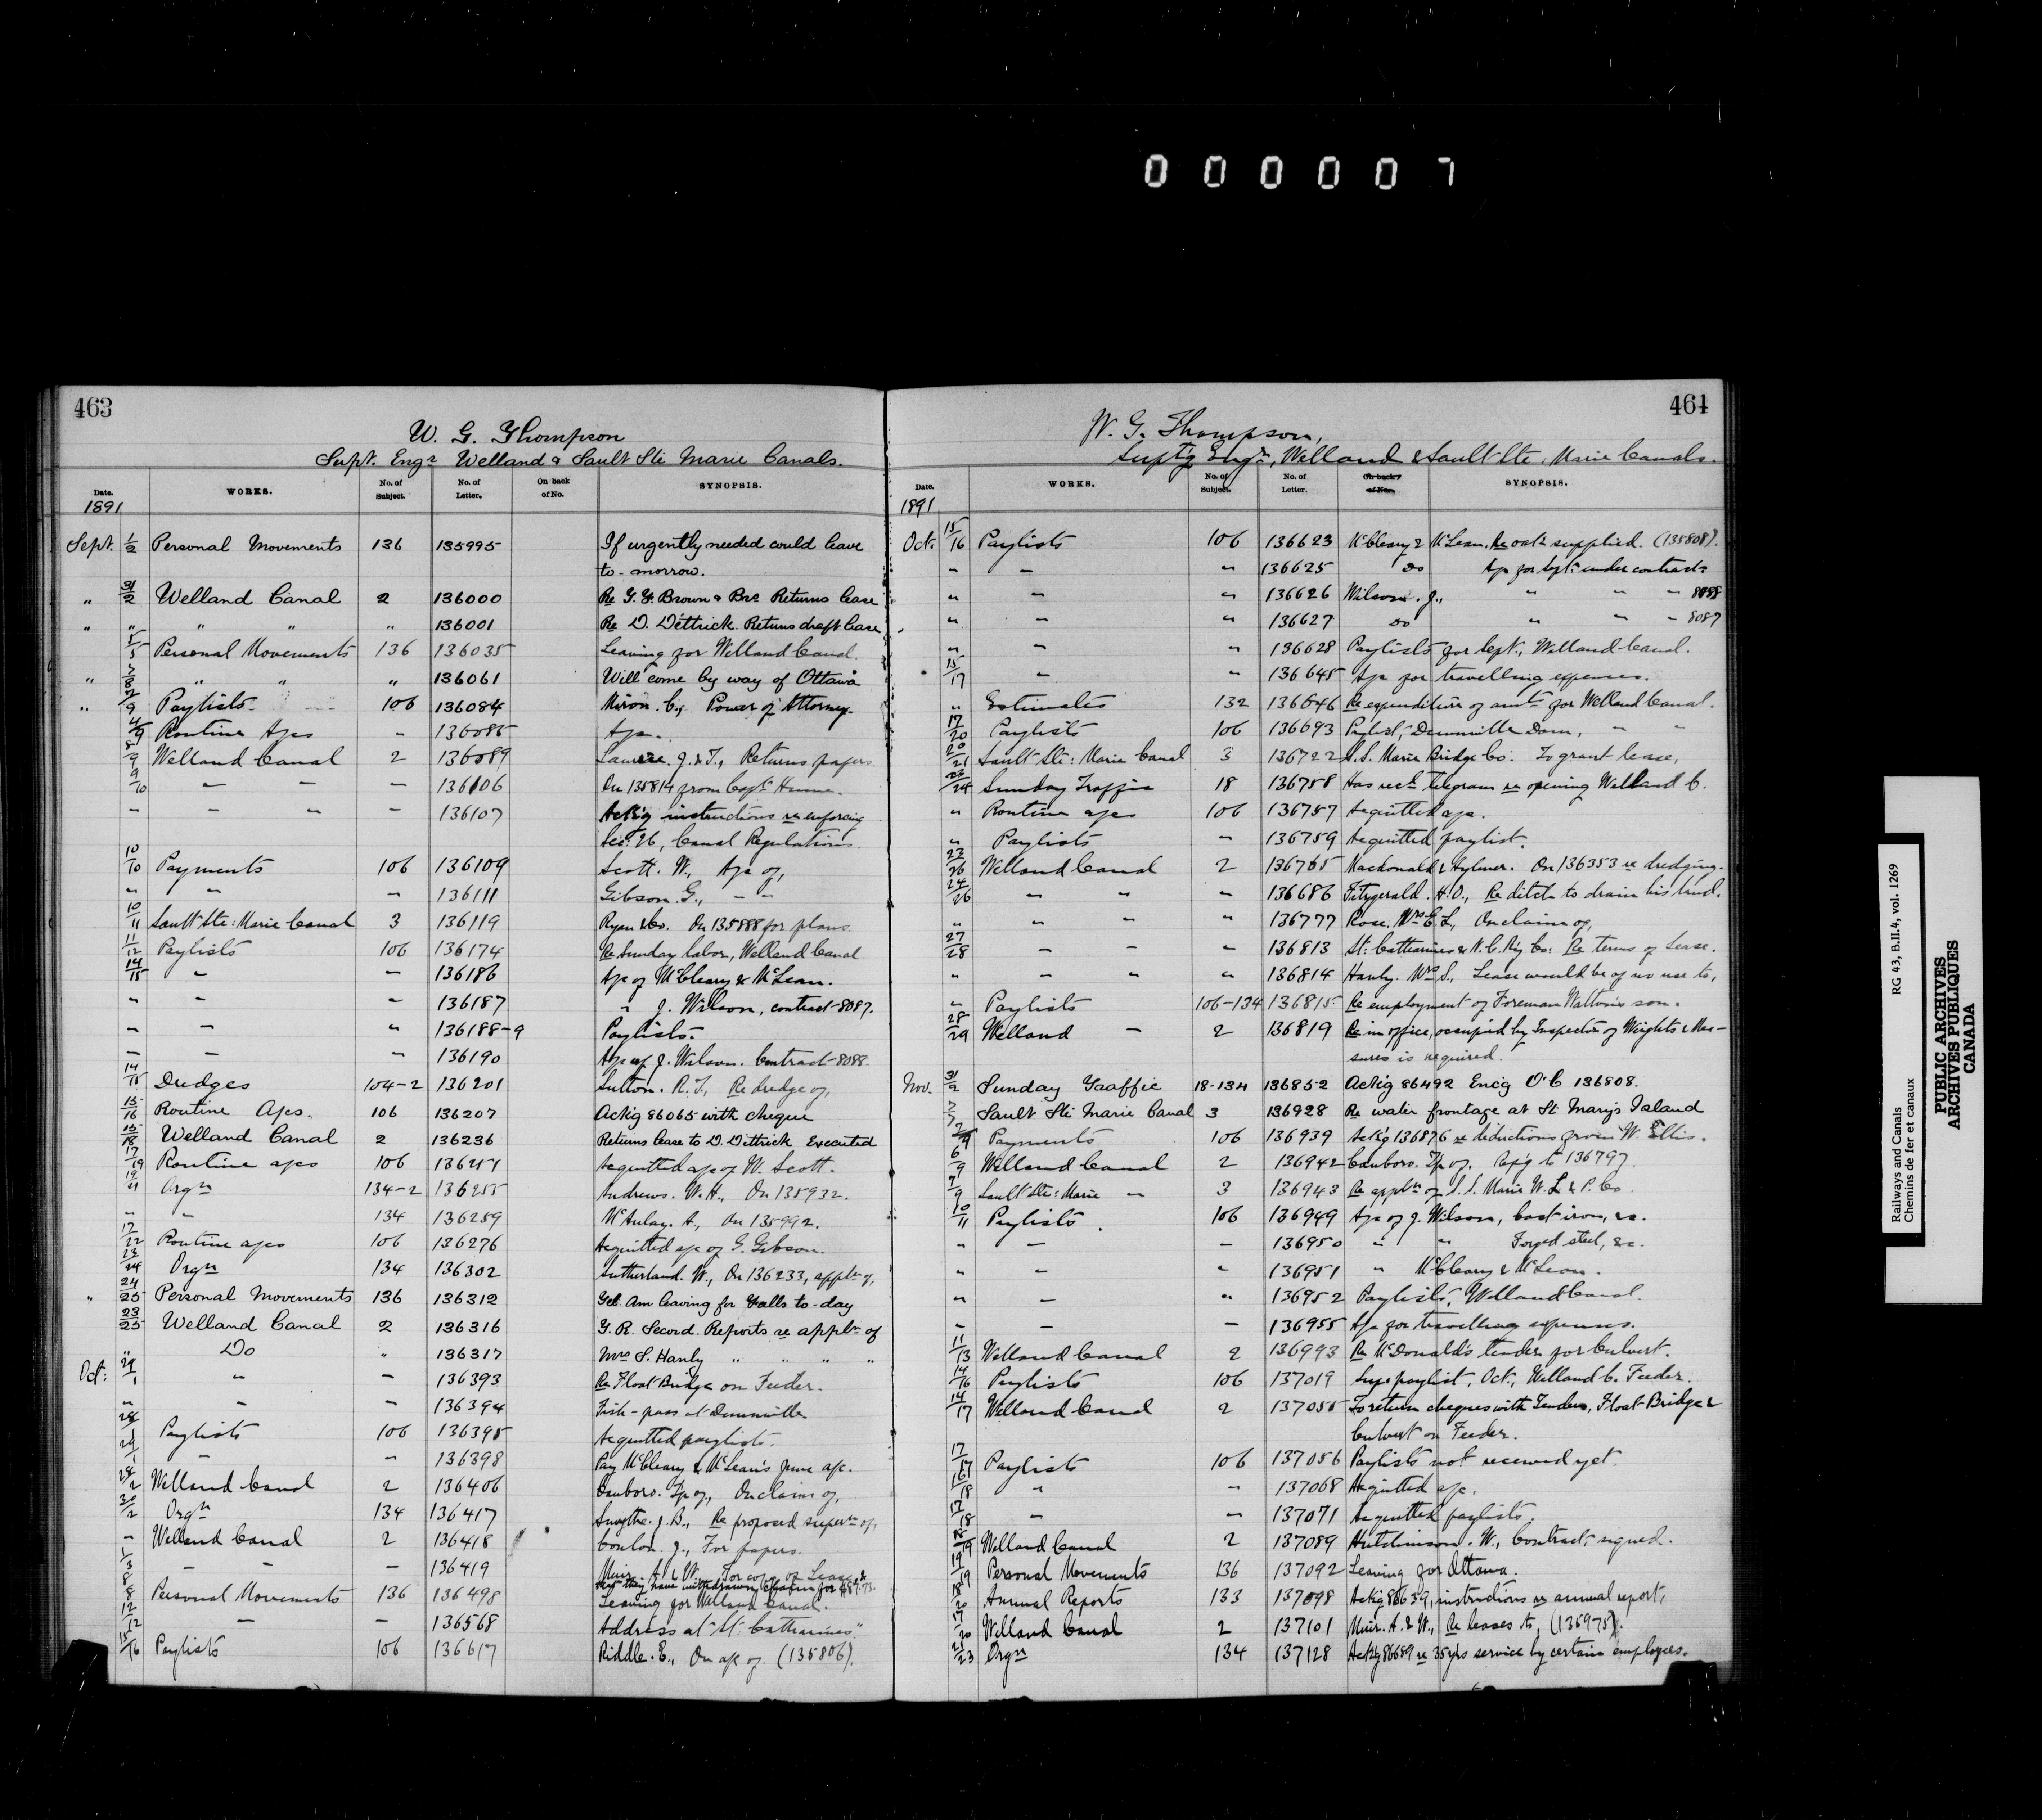 0 0 0 0 0 7
463
W. G. Thompson
Supt. Engr Welland & Sault Ste Marie Canals.
Date. WORKS. No. of Subject. No. of Letter. On back of No. SYNOPSIS.
1891
Sept. 1/2 Personal Movements 136 135995 If urgently needed could leave
to-morrow.
" 31/2 Welland Canal 2 136000 Re G. F. Brown & Bro Returns lease
" " " " " 136001 Re D. Dettrick. Returns draft lease
5/5 Personal Movements 136 136035 Leaving for Welland Canal.
" 7/8 " " " 136061 Will come by way of Ottawa
" 2/9 Paylists 106 136084 Miron. C., Power of Attorney.
4/9 Routine Apcs - 136085 Apc.
8/9 Welland Canal 2 136089 Laurie. J. & T., Returns papers
9/10 - - - 136106 On 135814 from Capt.
- - - " - 136107 Ackg instructions re enforcing
Sec. 26, Canal Regulations
10/10 Payments 106 136109 Scott. W., Apc of,
" " - 136111 Gibson. G., - -
10/11 Sault Ste: Marie Canal 3 136119 Ryan & Co. On 135888 for plans.
11/12 Paylists 106 136174 Re Sunday labor, Welland Canal
14/15 " - 136186 Apc of McCleary & McLean.
" - - 136187 " J. Wilson, contract 8087.
" - " 136188-9 Paylists.
- - - 136190 Apc of J. Wilson. Contract 8088.
14/15 Dredges 104-2 136201 Sutton. R. T., Re dredge of,
15/16 Routine Apcs. 106 136207 Ackg 86065 with cheque
15/18 Welland Canal 2 136236 Returns lease to D. Dittrick Executed
17/19 Routine apcs 106 136251 Acquitted apc of W. Scott.
19/21 Orgn 134-2 136255 Andrews. W. H., On 135932.
" " 134 136259 McAulay. A., On 135992.
17/22 Routine apcs 106 136276 Acquitted apc of G. Gibson.
23/24 Orgn 134 136302 Sutherland. W., On 136233, appln of,
" 24/25 Personal Movements 136 136312 Tel. Am leaving for Falls to-day
23/25 Welland Canal 2 136316 G. R. Secord. Reports re appln of
" Do " 136317 Mrs S. Hanly " " " "
Oct: 29/1 " - 136393 Re Float Bridge on Feeder.
" " - 136394 Fish-pass at Dunnville
28/1 Paylists 106 136395 Acquitted paylists.
29/1 - " 136398 Pay McCleary & McLean's June apc.
28/2 Welland Canal 2 136406 Canboro. Tp of, On claim of,
30/2 Orgn 134 136417 Smythe. J. B., Re proposed supern of,
- Welland Canal 2 136418 Conlon. J., For papers.
1/3 - - - 136419 Muir. A. & W., For copy of Lease, &
that they have withdrawn claim for $87.73.
8/8 Personal Movements 136 136498 Leaving for Welland Canal.
12/12 - - 136568 Address at "St. Catharines"
15/16 Paylists 106 136617 Riddle. E., On apc of. (135806).
464
W. G. Thompson,
Supt'g Engr, Welland & Sault Ste: Marie Canals.
Date. WORKS. No. of Subject. No. of Letter. On back of No. SYNOPSIS.
1891
Oct. 15/16 Paylists 106 136623 McCleary & McLean. Re oak supplied. (135808).
" - " 136625 Do Apc for Sept: under contracts
" - " 136626 Wilson. J., " " " 8088
" - " 136627 Do " - - 8087
" - " 136628 Paylists for Sept., Welland Canal.
15/17 - " 136645 Apc for travelling expenses.
" Estimates 132 136646 Re expenditure of amts for Welland Canal.
17/20 Paylists 106 136693 Paylist, Dunnville Dam, " "
20/21 Sault Ste: Marie Canal 3 136722 S. S. Marie Bridge Co. To grant lease,
23/24 Sunday Traffic 18 136758 Has recd telegram re opening Welland C.
" Routine apcs 106 136757 Acquitted apc.
" Paylists - 136759 Acquitted paylist.
23/26 Welland Canal 2 136765 Macdonald & Aylmer. On 136353 re dredging.
24/26 - " - 136686 Fitzgerald. H. O., Re ditch to drain his land.
" " " " 136777 Rose. Mrs E. L., On claim of,
27/28 - - - 136813 St: Catharines & N. C. Ry Co: Re terms of lease.
" - " " 136814 Hanly. Mrs S., Lease would be of no use to,
" Paylists 106-134 136815 Re employment of Foreman Walton's son.
28/29 Welland - 2 136819 Rm in office, occupied by Inspector of Weights & Mea-
sures is required.
Nov. 31/2 Sunday Traffic 18-134 136852 Ackg 86492 Encg O'C 136808.
7/7 Sault Ste Marie Canal 3 136928 Re water frontage at St Mary's Island
7/9 Payments 106 136939 Ackg 136876 re deductions from W. Ellis.
6/9 Welland Canal 2 136942 Canboro. Tp of, Repg to 136797.
7/9 Sault Ste: Marie " 3 136943 Re appln of S. S. Marie W. L. & P. Co.
10/11 Paylists. 106 136949 Apc of J. Wilson, Cast iron, &c.
" - - 136950 " " Forged steel, &c.
" - " 136951 " McCleary & McLean.
" - " 136952 Paylists, Welland Canal.
- - - 136955 Apc for travelling expenses.
11/13 Welland Canal 2 136993 Re McDonald's tender for Culvert.
14/16 Paylists 106 137019 Sup. paylist, Oct., Welland C. Feeder.
14/17 Welland Canal 2 137055 To return cheques with Tenders, Float Bridge &
Culvert on Feeder.
17/17 Paylists 106 137056 Paylists not received yet.
16/18 " - 137068 Acquitted apc.
17/18 - - 137071 Acquitted paylists.
18/19 Welland Canal 2 137089 Hutchinson. W., Contract, signed.
19/19 Personal Movements 136 137092 Leaving for Ottawa.
18/20 Annual Reports 133 137098 Ackg 86639, instructions re annual report,
17/20 Welland Canal 2 137101 Muir. A. & W., Re leases to, (136975).
21/23 Orgn 134 137128 Ackg 86689 re 35 yrs service by certain employees.
Railways and Canals RG 43, B.II.4, vol. 1269
Chemins de fer et canaux
PUBLIC ARCHIVES
ARCHIVES PUBLIQUES
CANADA